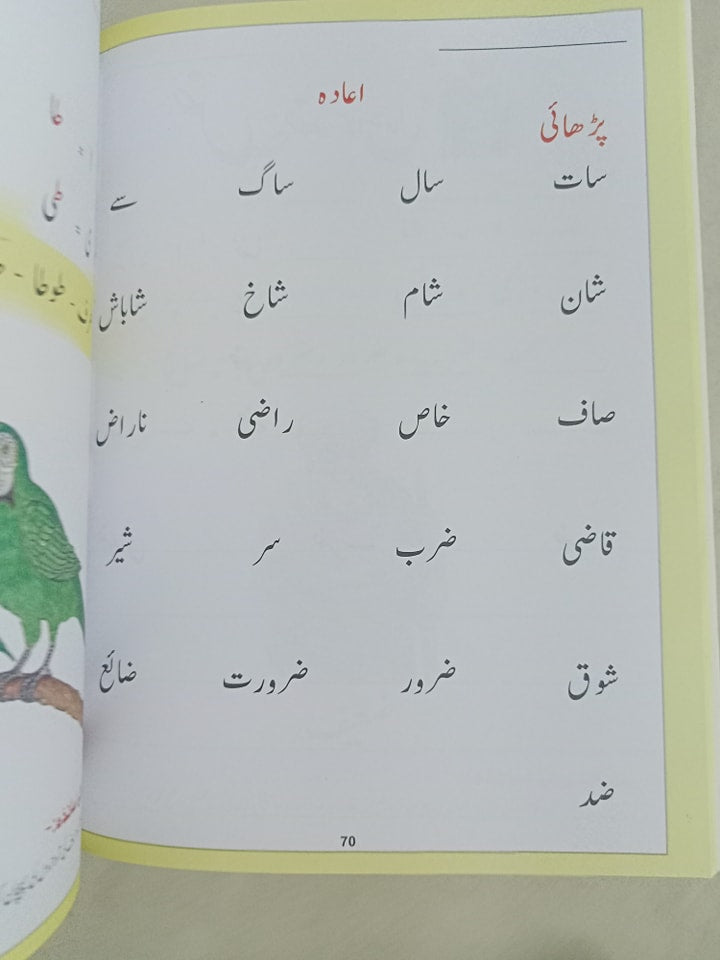 اعادہ
پڑھائی
سات سال ساگ سے
شان شام شاخ شاباش
صاف خاص راضی ناراض
قاضی ضرب سر شیر
شوق ضرور ضرورت ضائع
ضد
70
طا
طی
طوطا -